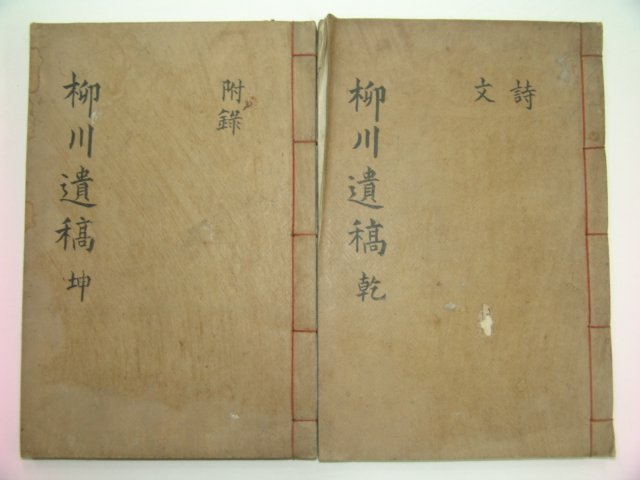 柳川遺稿 乾
詩
文
柳川遺稿 坤
附錄